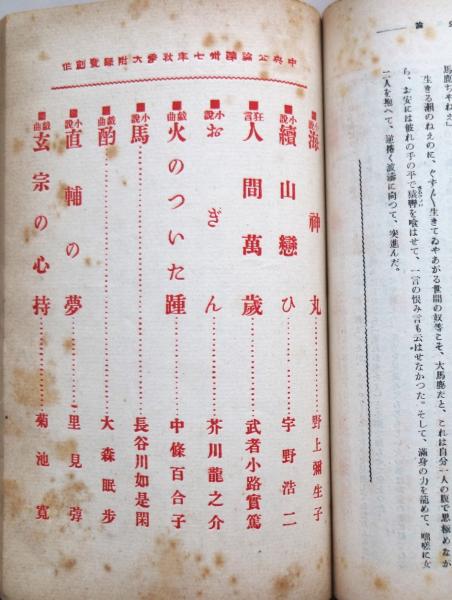 論
馬鹿ぢやねえ」
生きる瀬のねえのに、ぐずん〱生きてゐやあがる世間の奴等こそ、大馬鹿だと、これは自分一人の腹で思極めなが
ら、お安には彼れの手の平で猿轡を喰はせて、一言の恨み言も云はせなかつた。そして、滿身の力を籠めて、嗚嗟に女
二人を抱へて、逆捲く波濤に向つて、突進んだ。
中央公論第卅七年秋季大附録創作
■小說 海神丸…………野上彌生子
■小說 續山戀ひ…………宇野浩二
■狂言 人間萬歲…………武者小路實篤
■小說 おぎん…………芥川龍之介
■戯曲 火のついた踵…………中條百合子
■小說 馬…………長谷川如是閑
■戯曲 酌…………大森眠步
■小說 直輔の夢…………里見弴
■戯曲 玄宗の心持…………菊池寬